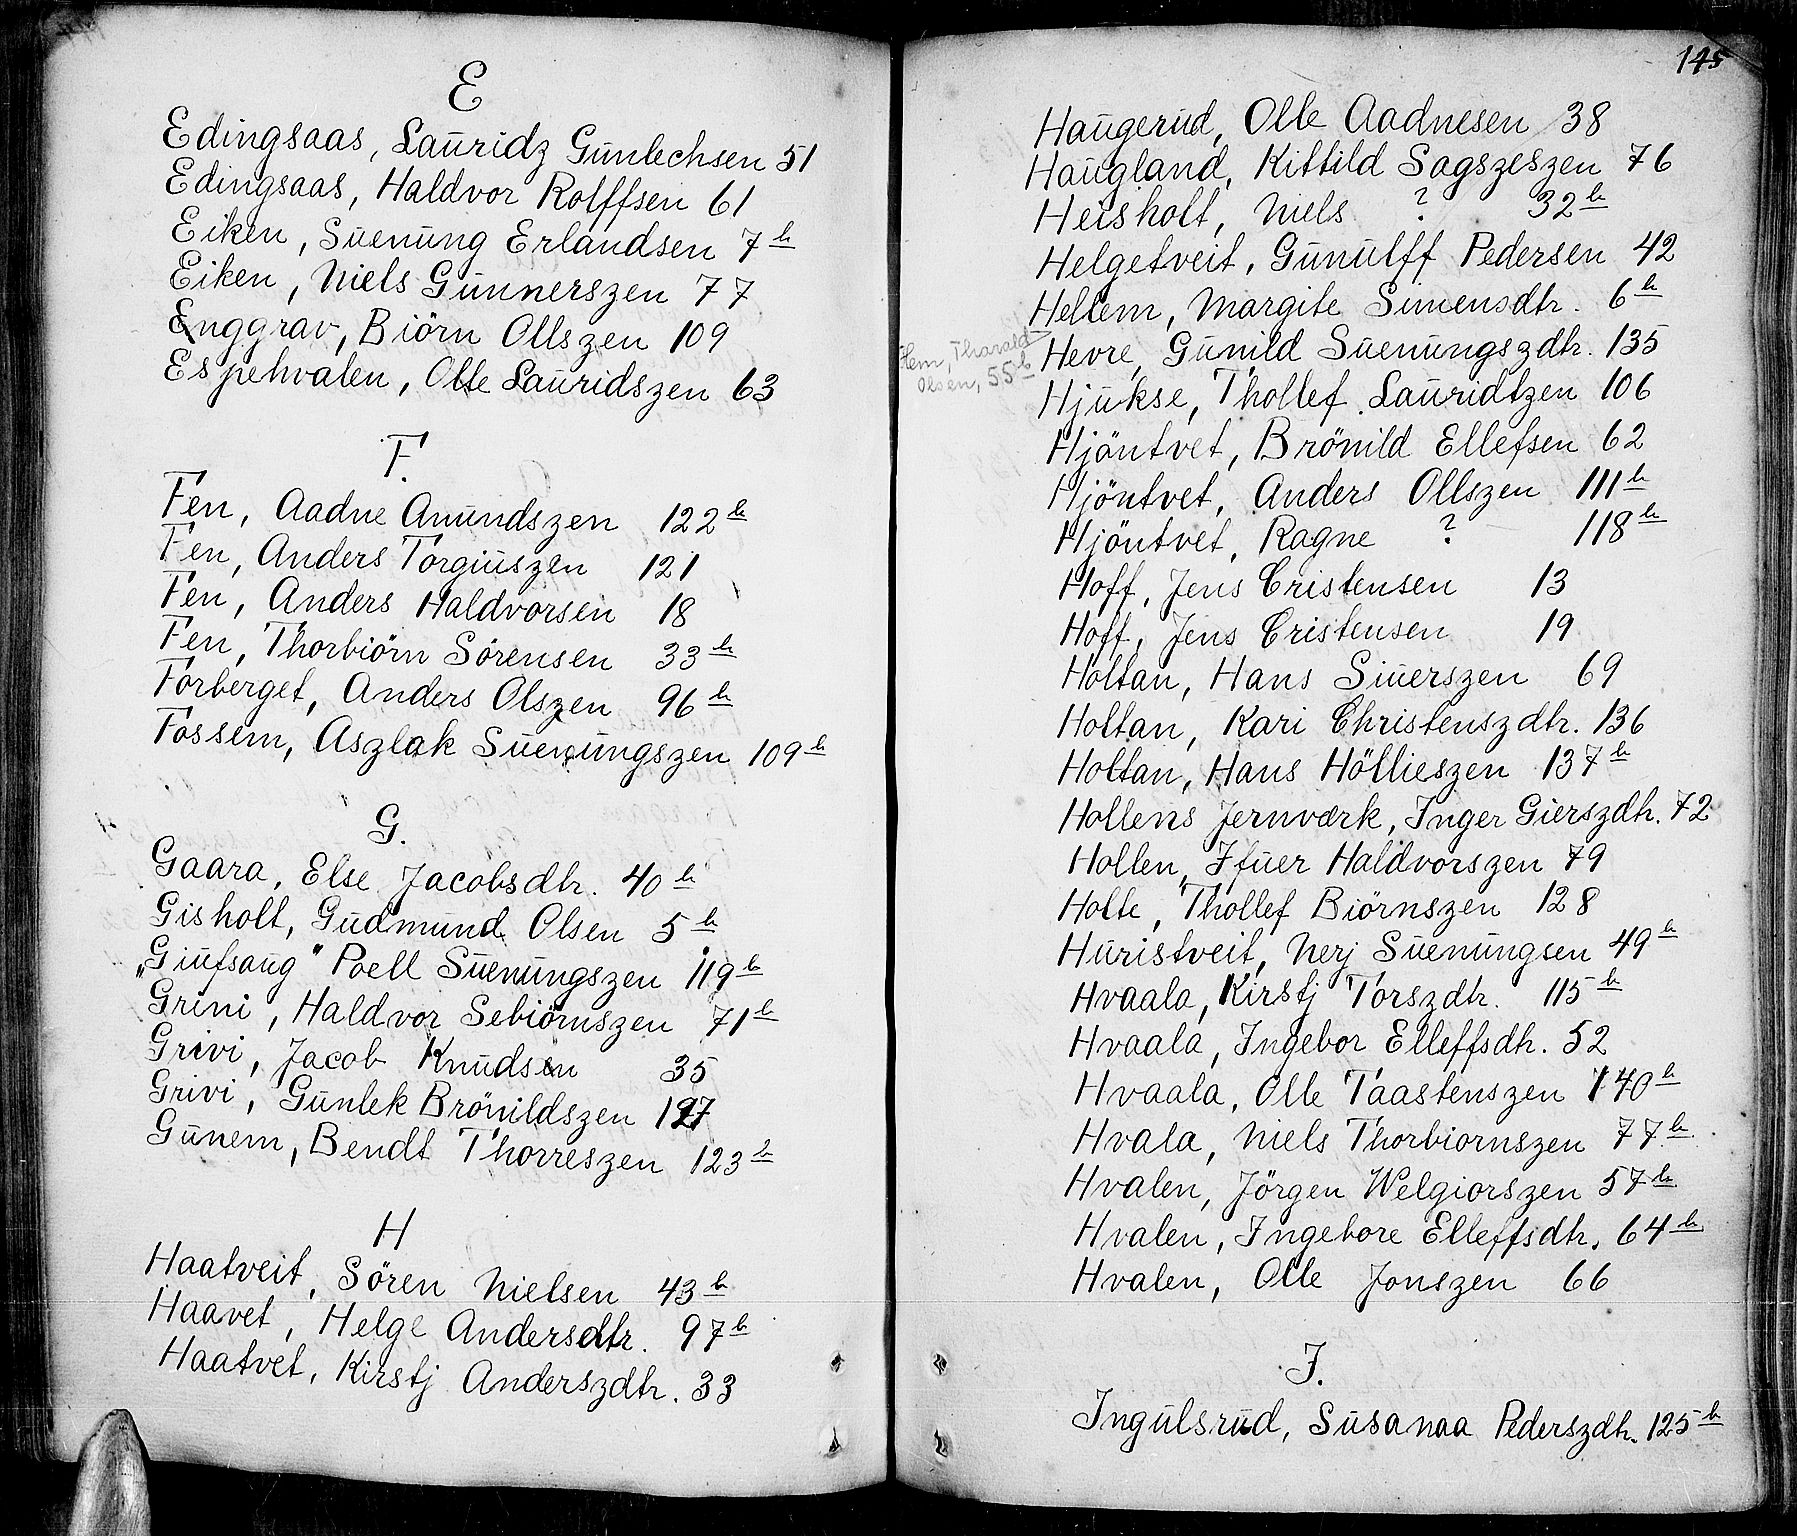 E
Edingsaas, Lauridz Gunlechsen 51
Edingsaas, Haldvor Rolffsen 61
Eiken, Suenung Erlandsen 7b
Eiken, Niels Gunnerszen 77
Enggrav, Biörn Ollszen 109
Espehvalen, Olle Lauridszen 63
F.
Fen, Aadne Anundszen 122b
Fen, Anders Torgiuszen 121
Fen, Anders Haldvorsen 18
Fen, Thorbiörn Sörensen 33b
Forberget, Anders Olszen 96b
Fossem, Aszlak Suenungszen 109b
G.
Gaara, Else Jacobsdtr. 40b
Gisholt, Gudmund Olsen 5b
„Giufsaug" Poell Suenungszen 119b
Grini, Haldvor Sebiörnszen 71b
Grivi, Jacob Knudsen 35
Grivi, Gunlek Brönildszen 127
Gunem, Bendt Thorreszen 123b
H
Haatveit, Sören Nielsen 43b
Haavet, Helge Andersdtr. 97b
Haatvet, Kirstj Anderszdtr. 33
145
Haugerud, Olle Aadnesen 38
Haugland, Kittild Sagszeszen 76
Heisholt, Niels ? 32b
Helgetveit, Gunulff Pedersen 42
Hellem, Margite Simensdtr. 6b
Hem, Tharald
Olsen, 55b
Hevre, Gunild Suenungszdtr. 135
Hjukse, Thollef Lauridtzen 106
Hjöntvet, Brönild Ellefsen 62
Hjöntvet, Anders Ollszen 111b
Hjöntvet, Ragne ? 118b
Hoff, Jens Cristensen 13
Hoff, Jens Cristensen 19
Holtan, Hans Siuerszen 69
Holtan, Kari Christenszdtr. 136
Holtan, Hans Höllieszen 137b
Hollens Jernværk, Inger Gierszdtr. 72
Hollen, Ifuer Haldvorszen 79
Holte, Thollef Biörnszen 128
Huristveit, Nerj Suenungsen 49b
Hvaala, Kirstj Torszdtr. 115b
Hvaala, Ingebor Elleffsdtr. 52
Hvaala, Olle Taastenszen 140b
Hvala, Niels Thorbiornszen 77b
Hvalen, Jörgen Welgiorszen 57b
Hvalen, Ingebore Elleffsdtr. 64b
Hvalen, Olle Jonszen 66
I.
Ingulsrud, Susanaa Pederszdtr. 125b